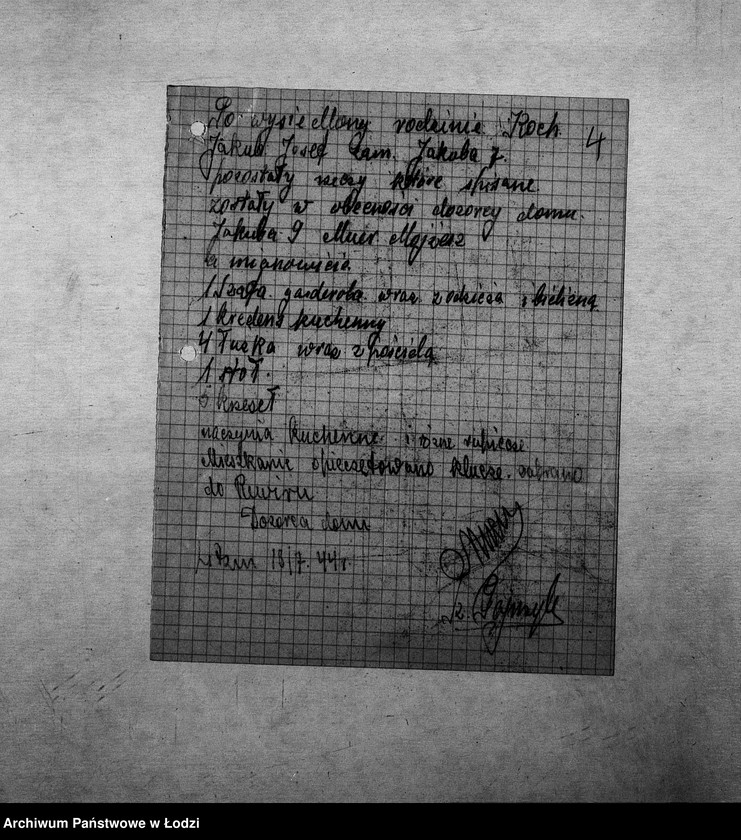 Po wysiedlonej rodzinie Koch 4
Jakub Josef zam. Jakuba 7.
pozostały rzeczy które spisane
zostały w obecności dozorcy domu
Jakuba 9 Mojżesz
a mianowicie
1 Szafa garderoba wraz z odzieżą i bielizną
1 kredens kuchenny
4 łużka wraz z pościelą
1 stół.
5 krzeseł
naczynia kuchenne i rózne rupiecie
Mieszkanie opieczętowano klucze zabrano
do Rewiru
Dozorca domu
18/7. 44 r.